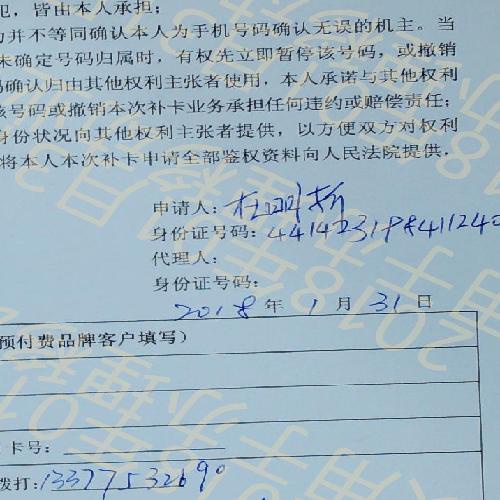 犯，皆由本人承担；
并不等同确认本人为手机号码确认无误的机主。当
未确定号码归属时，有权先立即暂停该号码，或撤销
码确认归由其他权利主张者使用，本人承诺与其他权利
该号码或撤销本次补卡业务承担任何违约或赔偿责任；
身份状况向其他权利主张者提供，以方便双方对权利
将本人本次补卡申请全部鉴权资料向人民法院提供，
申请人：杜明
身份证号码：
代理人：
身份证号码：
2018年1月31日
预付费品牌客户填写）
卡号：
拨打：13377532690